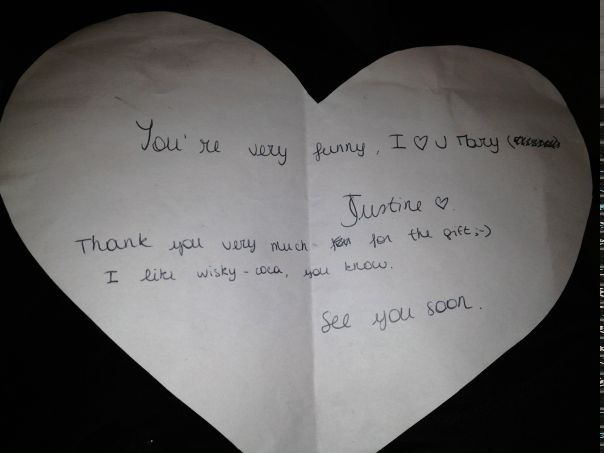 You're very funny, I ♡ U Mary (
Justine ♡.
Thank you very much for the gift ;-)
I like wisky-coca, you know.
See you soon.